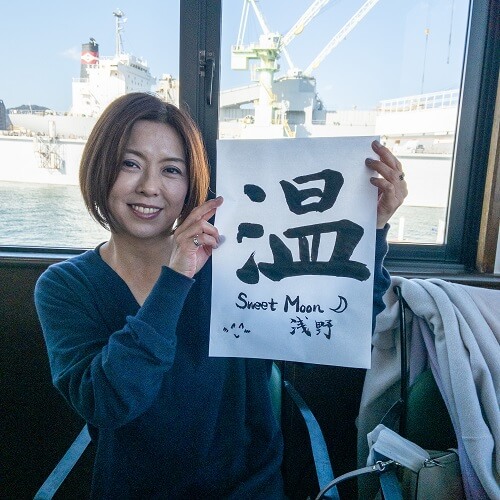 温
Sweet Moon
浅野